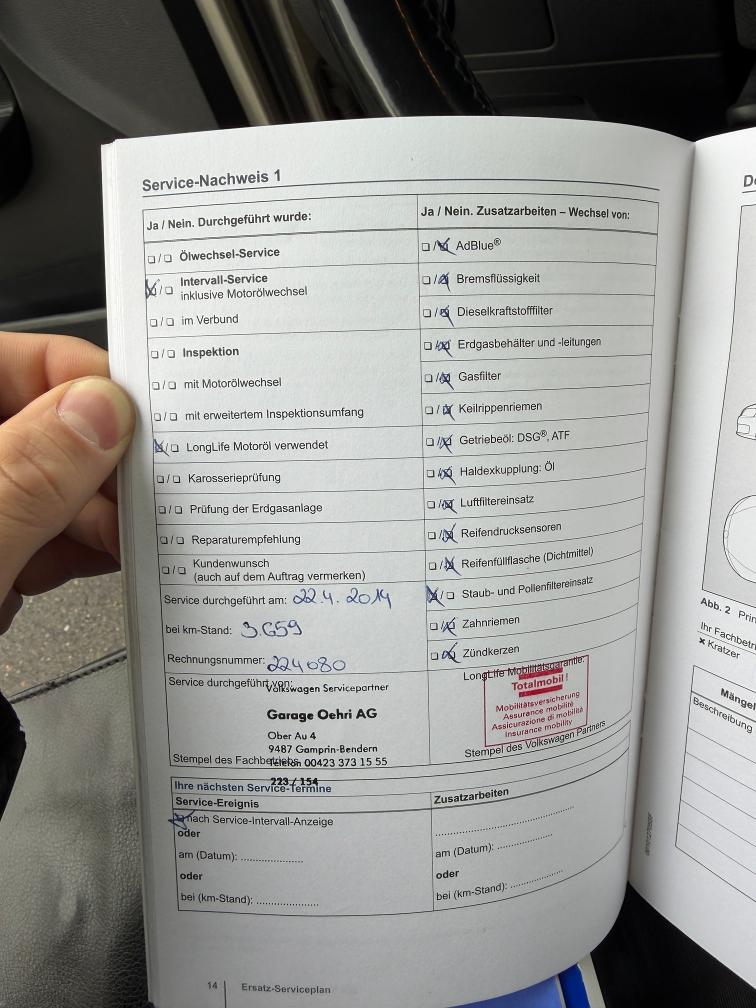 Service-Nachweis 1
Ja / Nein. Durchgeführt wurde:
❏ / ❏ Ölwechsel-Service
☒ / ❏ Intervall-Service
inklusive Motorölwechsel
❏ / ❏ im Verbund
❏ / ❏ Inspektion
❏ / ❏ mit Motorölwechsel
❏ / ❏ mit erweitertem Inspektionsumfang
☒ / ❏ LongLife Motoröl verwendet
❏ / ❏ Karosserieprüfung
❏ / ❏ Prüfung der Erdgasanlage
❏ / ❏ Reparaturempfehlung
❏ / ❏ Kundenwunsch
(auch auf dem Auftrag vermerken)
Service durchgeführt am: 22.4.2014
bei km-Stand: 3.659
Rechnungsnummer: 224080
Service durchgeführt von:
Volkswagen Servicepartner
Garage Oehri AG
Ober Au 4
9487 Gamprin-Bendern
Telefon 00423 373 15 55
Stempel des Fachbetriebs
223 / 154
Ja / Nein. Zusatzarbeiten – Wechsel von:
❏ / ☒ AdBlue®
❏ / ☒ Bremsflüssigkeit
❏ / ☒ Dieselkraftstofffilter
❏ / ☒ Erdgasbehälter und -leitungen
❏ / ☒ Gasfilter
❏ / ☒ Keilrippenriemen
❏ / ☒ Getriebeöl: DSG®, ATF
❏ / ☒ Haldexkupplung: Öl
❏ / ☒ Luftfiltereinsatz
❏ / ☒ Reifendrucksensoren
❏ / ☒ Reifenfüllflasche (Dichtmittel)
☒ / ❏ Staub- und Pollenfiltereinsatz
❏ / ☒ Zahnriemen
❏ / ☒ Zündkerzen
LongLife Mobilitätsgarantie:
Totalmobil!
Mobilitätsversicherung
Assurance mobilité
Assicurazione di mobilità
Insurance mobility
Stempel des Volkswagen Partners
Ihre nächsten Service-Termine
Service-Ereignis
☒ nach Service-Intervall-Anzeige
oder
am (Datum): .....................
oder
bei (km-Stand): .....................
Zusatzarbeiten
..............................................
am (Datum): ..................
oder
bei (km-Stand): ..................
14 Ersatz-Serviceplan
Abb. 2
Ihr Fachbetri
× Kratzer
Mängel
Beschreibung